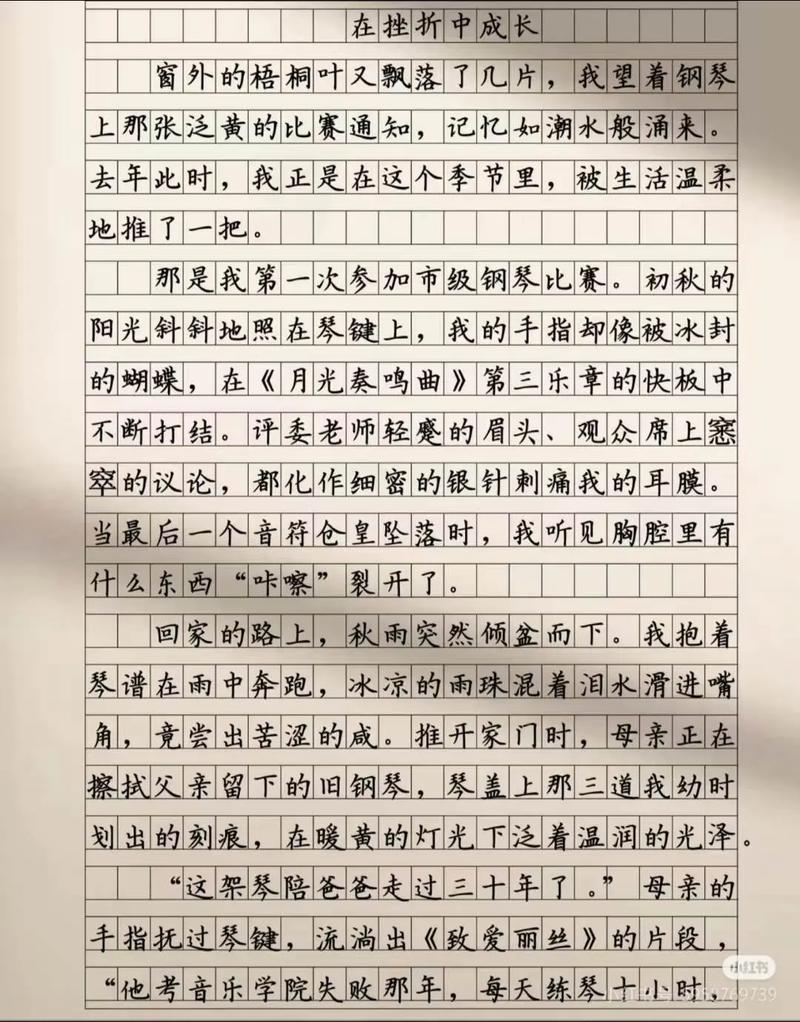 在挫折中成长
窗外的梧桐叶又飘落了几片，我望着钢琴
上那张泛黄的比赛通知，记忆如潮水般涌来。
去年此时，我正是在这个季节里，被生活温柔
地推了一把。
那是我第一次参加市级钢琴比赛。初秋的
阳光斜斜地照在琴键上，我的手指却像被冰封
的蝴蝶，在《月光奏鸣曲》第三乐章的快板中
不断打结。评委老师轻蹙的眉头、观众席上窸
窣的议论，都化作细密的银针刺痛我的耳膜。
当最后一个音符仓皇坠落时，我听见胸腔里有
什么东西“咔嚓”裂开了。
回家的路上，秋雨突然倾盆而下。我抱着
琴谱在雨中奔跑，冰凉的雨珠混着泪水滑进嘴
角，竟尝出苦涩的咸。推开家门时，母亲正在
擦拭父亲留下的旧钢琴，琴盖上那三道我幼时
划出的刻痕，在暖黄的灯光下泛着温润的光泽。
“这架琴陪爸爸走过三十年了。”母亲的
手指抚过琴键，流淌出《致爱丽丝》的片段，
“他考音乐学院失败那年，每天练琴十小时，
小红书